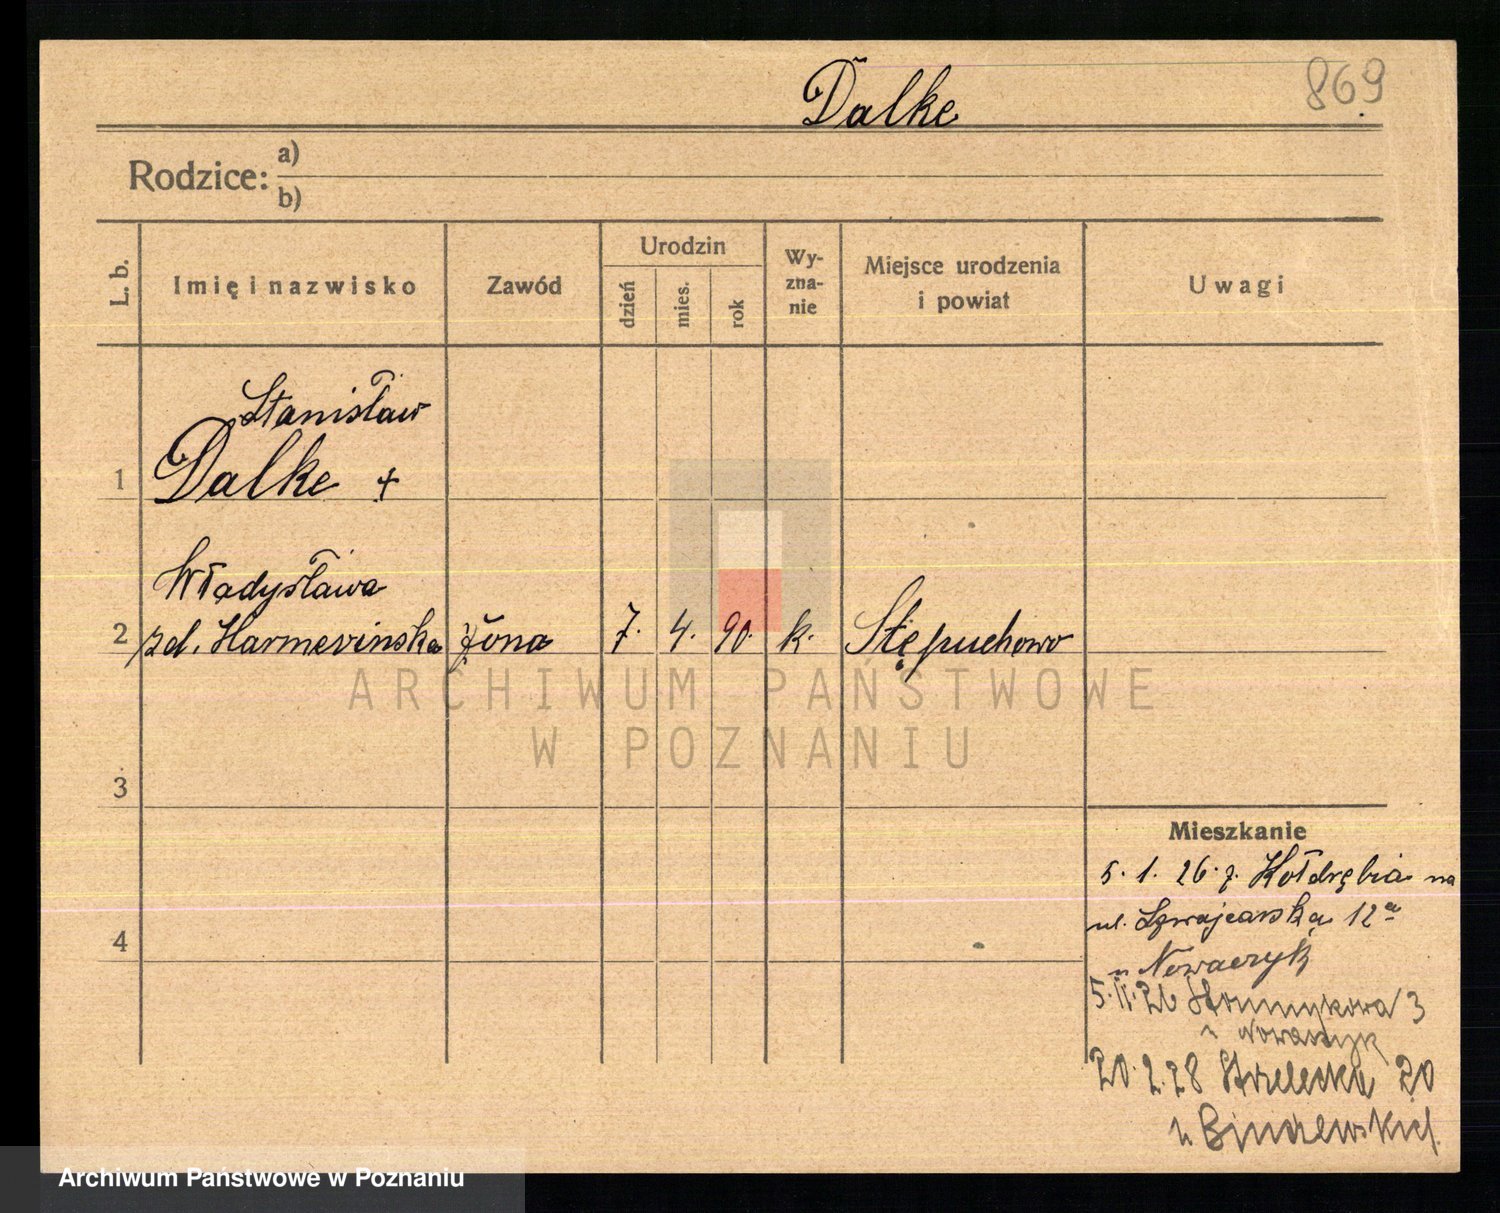 869
Dalke
Rodzice: a)
b)
L. b. Imię i nazwisko Zawód Urodzin dzień mies. rok Wy-zna-nie Miejsce urodzenia i powiat Uwagi
Stanisław
1 Dalke +
Władysława
2 zd. Harmevinska żona 7. 4. 90. k. Stępuchowo
ARCHIWUM PAŃSTWOWE
W POZNANIU
3
Mieszkanie
5. 1. 26. z. Kołdrębia na
ul. Szwajcarską 12a
4
u Nowaczyk
5. II. 26 3
u Nowaczyk
20. 2. 28 Strzelecka 20
u
Archiwum Państwowe w Poznaniu